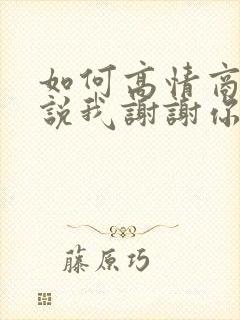 如何高情商
説我謝謝你
藤原巧